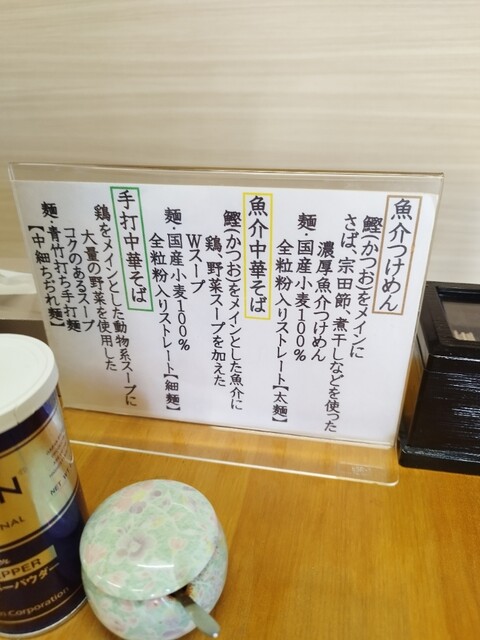 魚介つけめん
鰹(かつお)をメインに
さば、宗田節、煮干しなどを使った
濃厚魚介つけめん
麺・国産小麦100%
全粒粉入りストレート【太麺】
魚介中華そば
鰹(かつお)をメインとした魚介に
鶏、野菜スープを加えた
Wスープ
麺・国産小麦100%
全粒粉入りストレート【細麺】
手打中華そば
鶏をメインとした動物系スープに
大量の野菜を使用した
コクのあるスープ
麺・青竹打ち手打麺
【中細ちぢれ麺】
N
NAL
NET
PPER
ーパウダー
Corporation